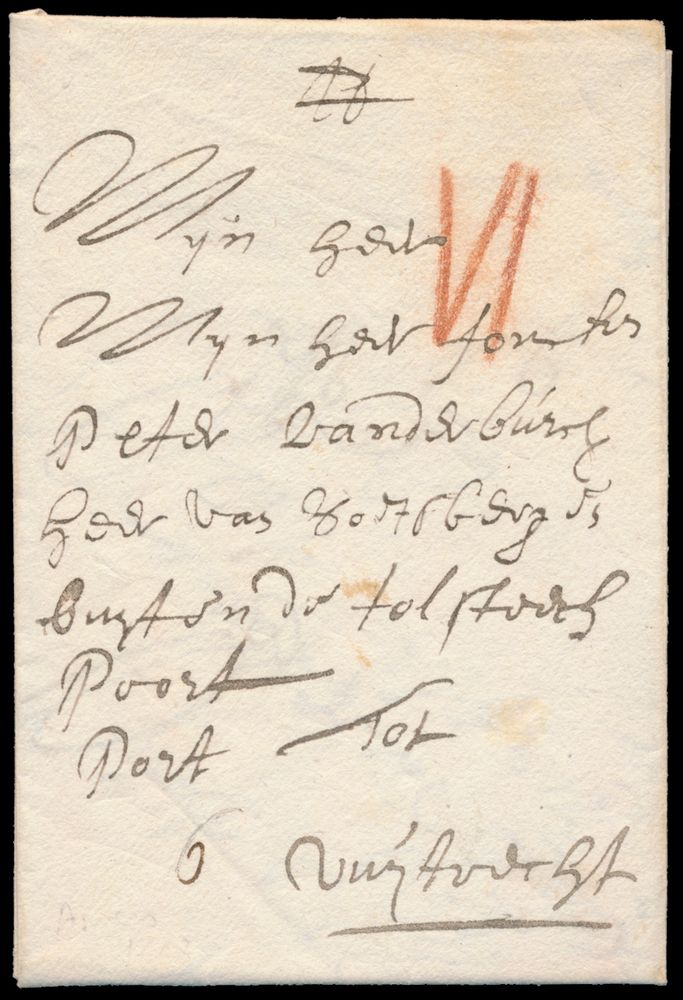 Mijn heer
VI
Mijn heer Joncker
Peter vanderbúrch
heer van Soetsbergen
buyten de tolsteech
Poort
Port tot
6 vuÿtrecht